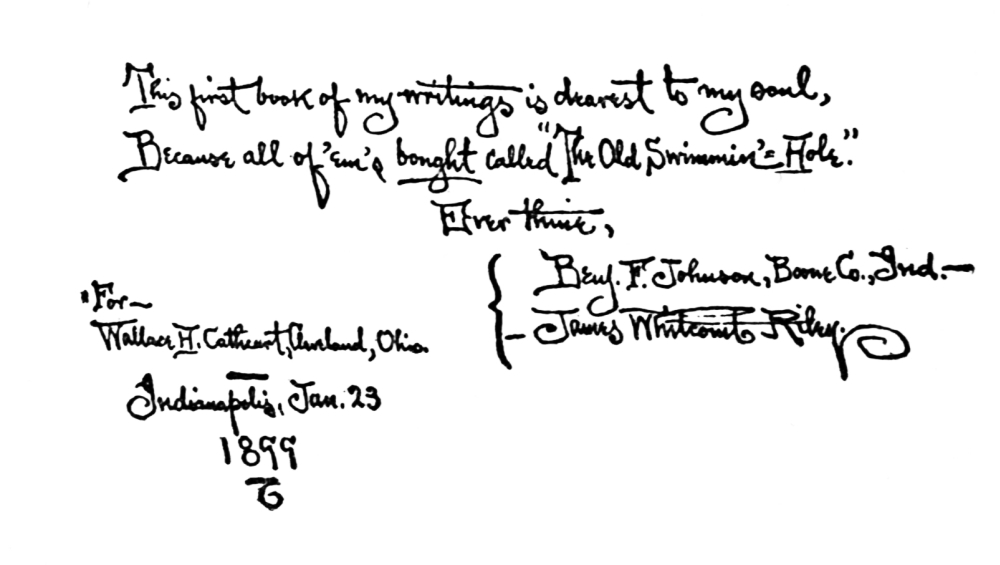 This first book of my writings is dearest to my soul,
Because all of 'em's bought called "The Old Swimmin'=Hole."
Ever thine,
Benj. F. Johnson, Boone Co., Ind.—
James Whitcomb Riley.
"For—
Wallace H. Cathcart, Cleveland, Ohio.
Indianapolis, Jan. 23
1899